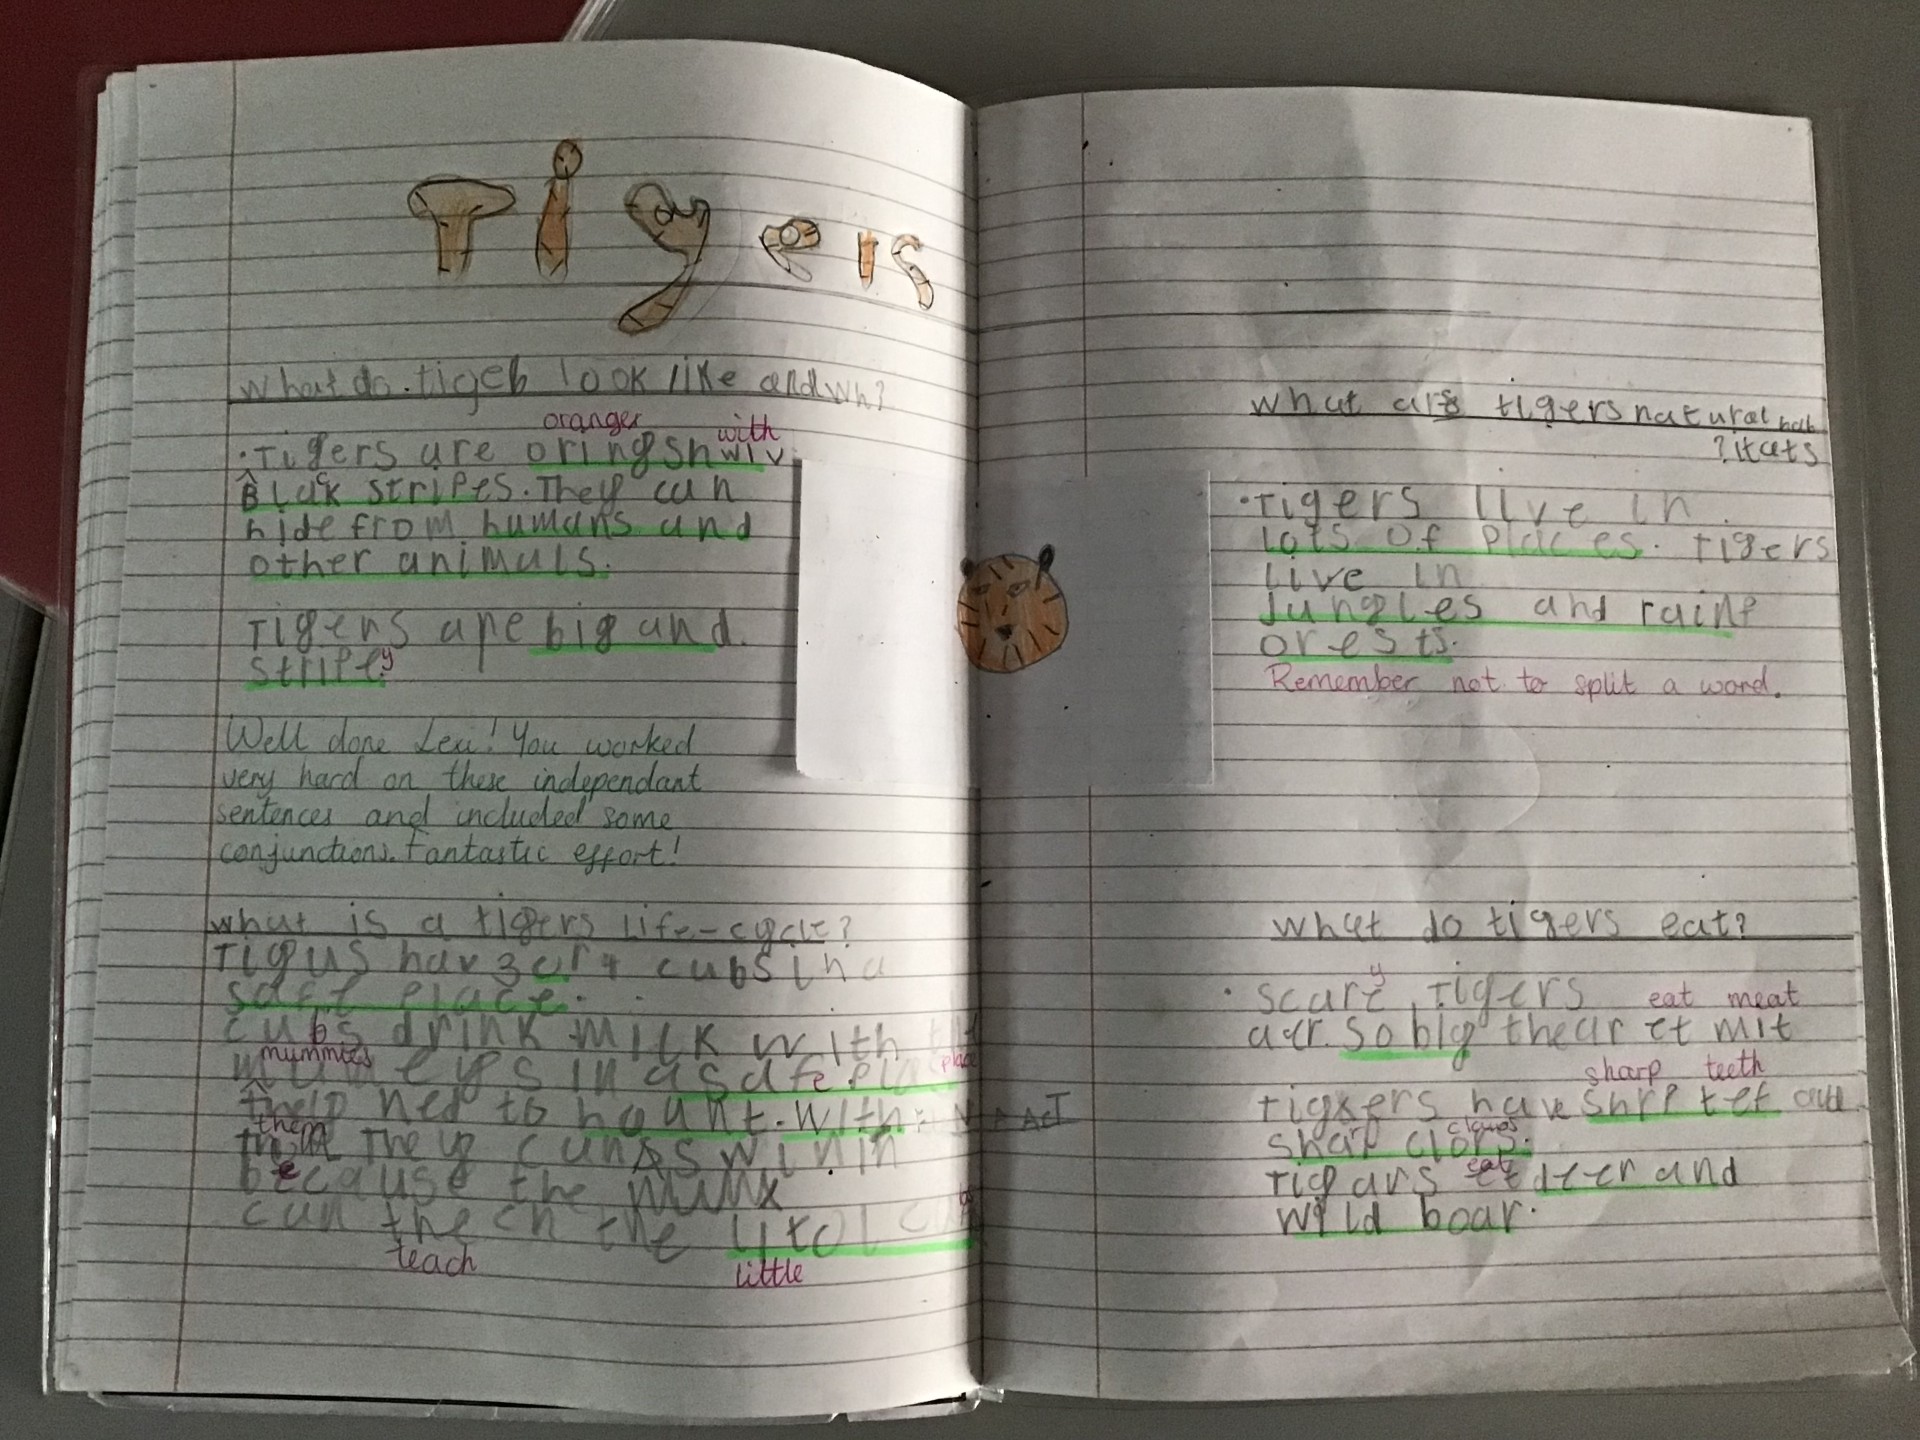 Tigers
What do tigers look like and wh?
oranger with
Tigers are oringsh wiv
Black stripes. They can
hide from humans and
other animals.
Tigers are big and
stripey
Well done Lexi! You worked
very hard on these independant
sentences and included some
conjunctions. Fantastic effort!
what is a tigers life-cycle?
Tigus hav 3 or 4 cubs in a
safe place.
cubs drink milk with
mummies place
in a safe
help ned to hount. with VAACT
them
they can swin in
because the
can the ch the litol
teach little
what are tigers natural hab
?itats
Tigers live in
lots of places. Tigers
live in
Jungles and rainf
orests.
Remember not to split a word.
what do tigers eat?
y
scare Tigers eat meat
aer. so big thear et mit
sharp teeth
Tigxers have shrp tef and
claws
sharp clors.
eat
Tigars et deer and
wild boar.